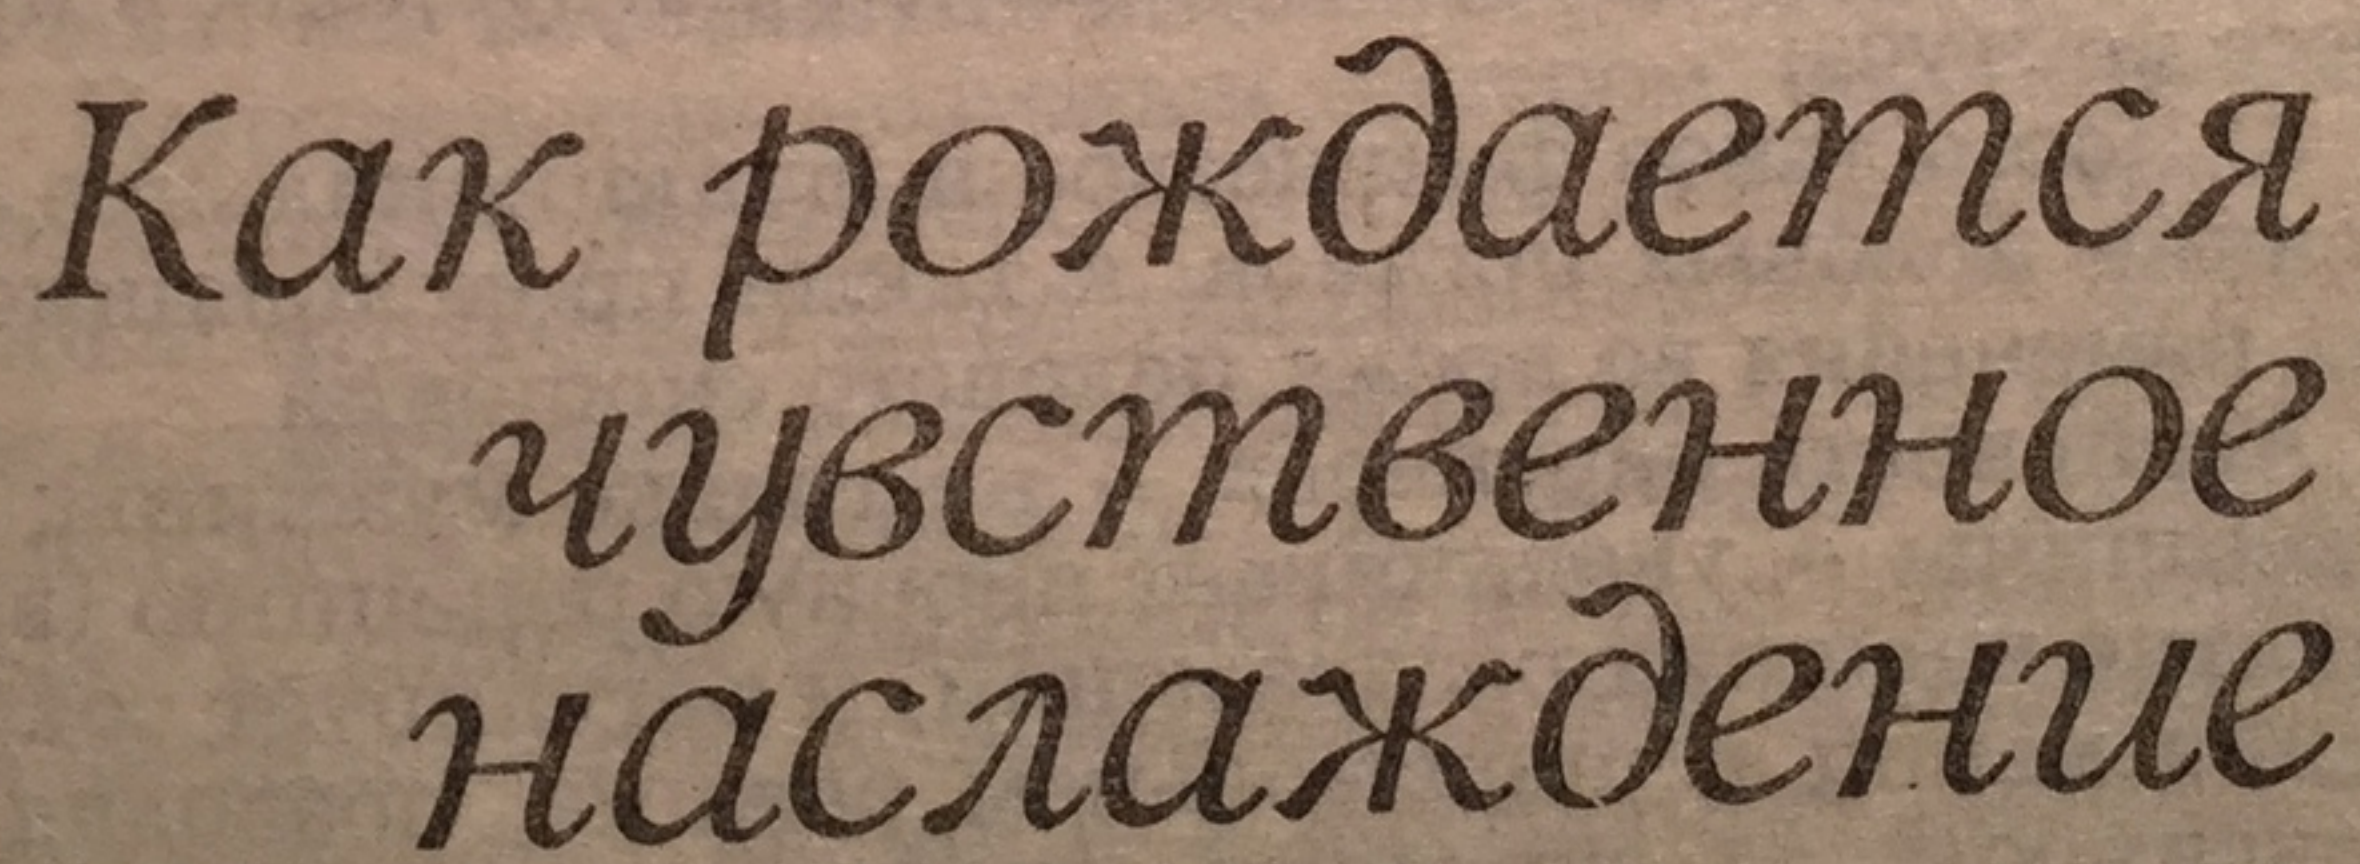 Как рождается
чувственное
наслаждение